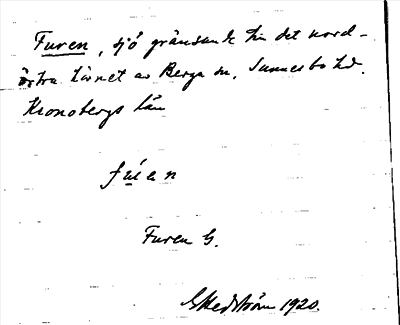 Furen, sjö gränsande till det nord-
östra hörnet av Berga sn, Sunnerbo hd.
Kronobergs län
Furen G.
G Hedström 1920.